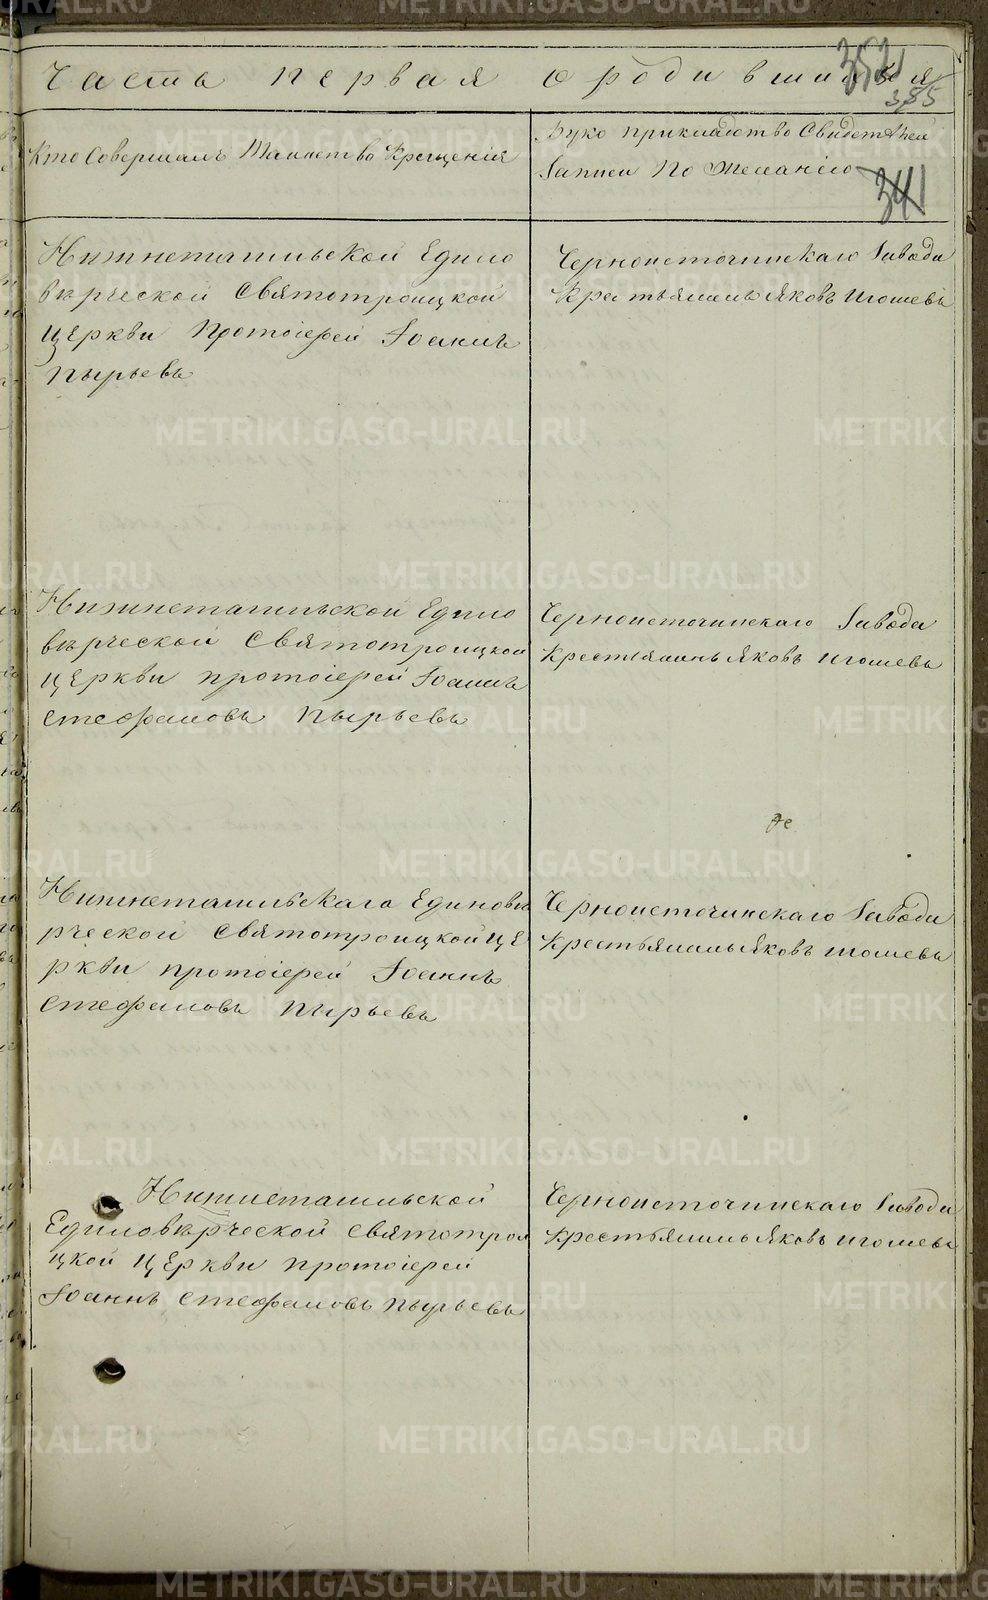 Часть первая о родившихся
352
385
341
Кто Совершалъ Таинство Крещенія
Рукоприкладство Свидетелей
Записи По Желанію
Нижнетагильской Едино
верческой Святотроицкой
Церкви Протоіерей Іоаннъ
Пырьевъ
Черноисточинскаго Завода
Крестьянинъ Яковъ Игошевъ
Нижнетагильской Едино
верческой Святотроицкой
Церкви протоіерей Іоаннъ
Стефановъ Пырьевъ
Черноисточинскаго Завода
Крестьянинъ Яковъ Игошевъ
Нижнетагильскаго Единове
рческой Святотроицкой Це
ркви протоіерей Іоаннъ
Стефановъ Пырьевъ
Черноисточинскаго Завода
Крестьянинъ Яковъ Игошевъ
Нижнетагильской
Единоверческой Святотрои
цкой Церкви протоіерей
Іоаннъ Стефановъ Пырьевъ
Черноисточинскаго Завода
Крестьянинъ Яковъ Игошевъ
METRIKI.GASO-URAL.RU